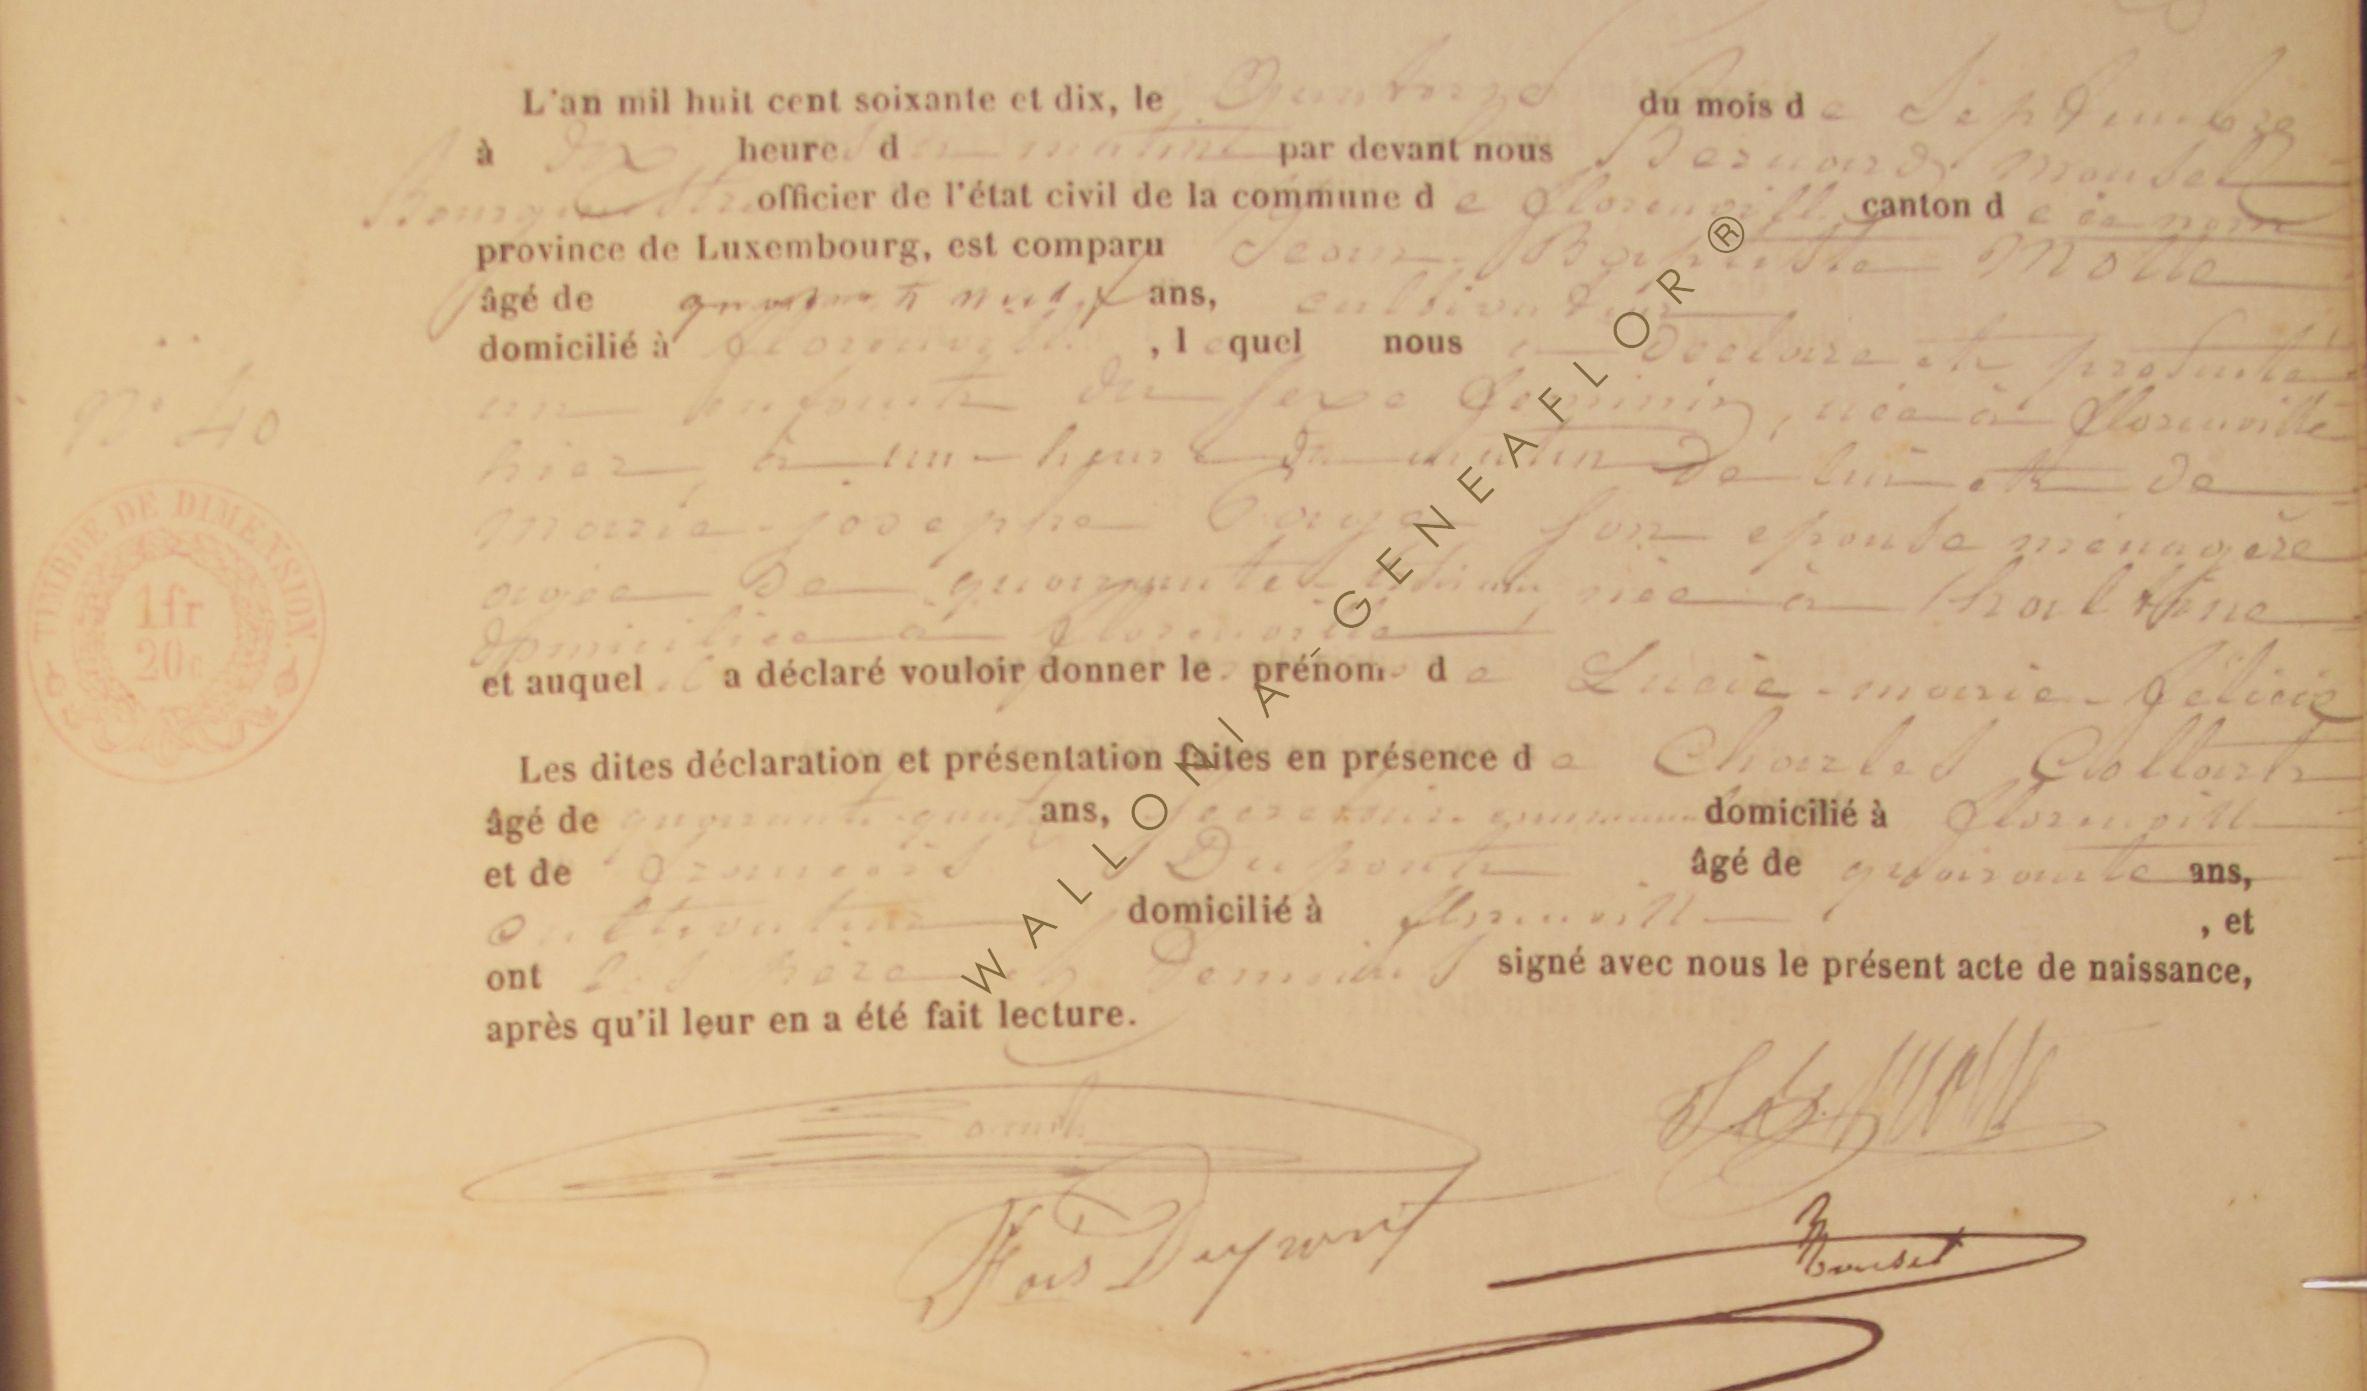 L'an mil huit cent soixante et dix, le Quatorze du mois de Septembre
à dix heures du matin par devant nous Bernard Mouset
Bourgmestre officier de l'état civil de la commune de florenville canton de ce nom
province de Luxembourg, est comparu Jean-Baptiste Molle
âgé de quarante neuf ans, cultivateur
domicilié à florenville, lequel nous a déclaré et présenté
un enfant du sexe féminin, née à florenville
hier, à un heure du matin de lui et de
Marie-josephe son epouse ménagère
agée de quarante née à
domiciliée à florenville
et auquel il a déclaré vouloir donner les prénoms de Lucie-marie-félicie
Les dites déclaration et présentation faites en présence de Charles Collart
âgé de quarante ans, secrétaire communal domicilié à florenville
et de francois Dupont âgé de quarante ans,
cultivateur domicilié à florenville, et
ont les père et témoins signé avec nous le présent acte de naissance,
après qu'il leur en a été fait lecture.
N° 40
TIMBRE DE DIMENSION.
1fr
20c
Fois Dupont
Mouset
WALLONIA-GENEAFLOR®